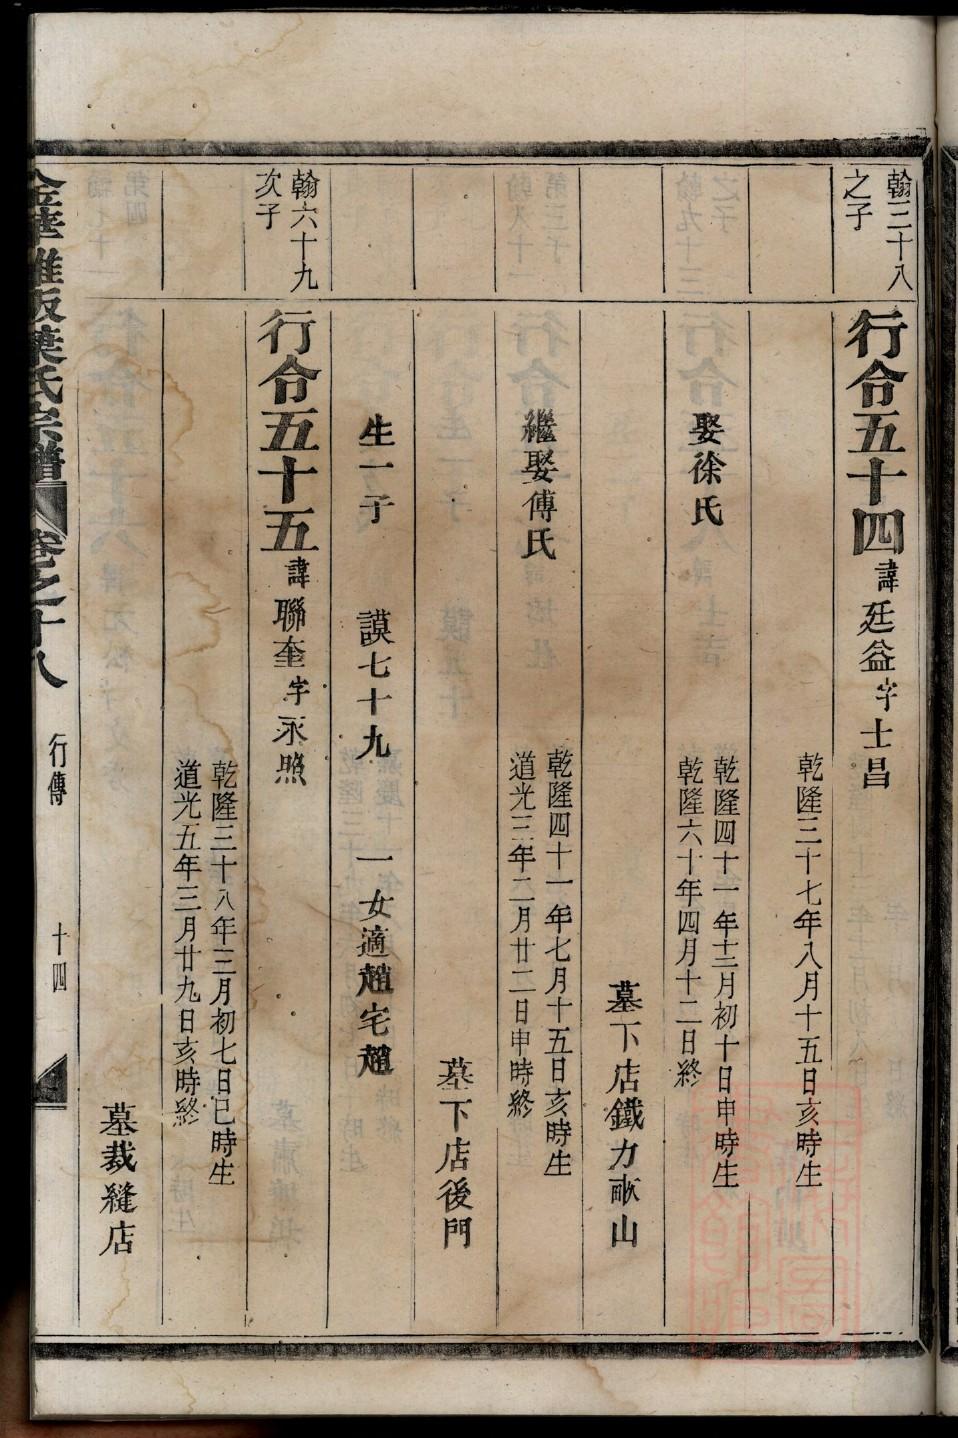 翰三十八
之子
行令五十四諱廷益字士昌
乾隆三十七年八月十五日亥時生
娶徐氏
乾隆四十一年十二月初十日申時生
乾隆六十年四月十二日終
墓下店鐵力畝山
繼娶傅氏
乾隆四十一年七月十五日亥時生
道光三年二月廿二日申時終
墓下店後門
生一子　謨七十九　一女適趙宅趙
翰六十九
次子
行令五十五諱聯奎字永照
乾隆三十八年三月初七日巳時生
道光五年三月廿九日亥時終
墓裁縫店
葉氏宗譜　卷之十八　行傳　十四